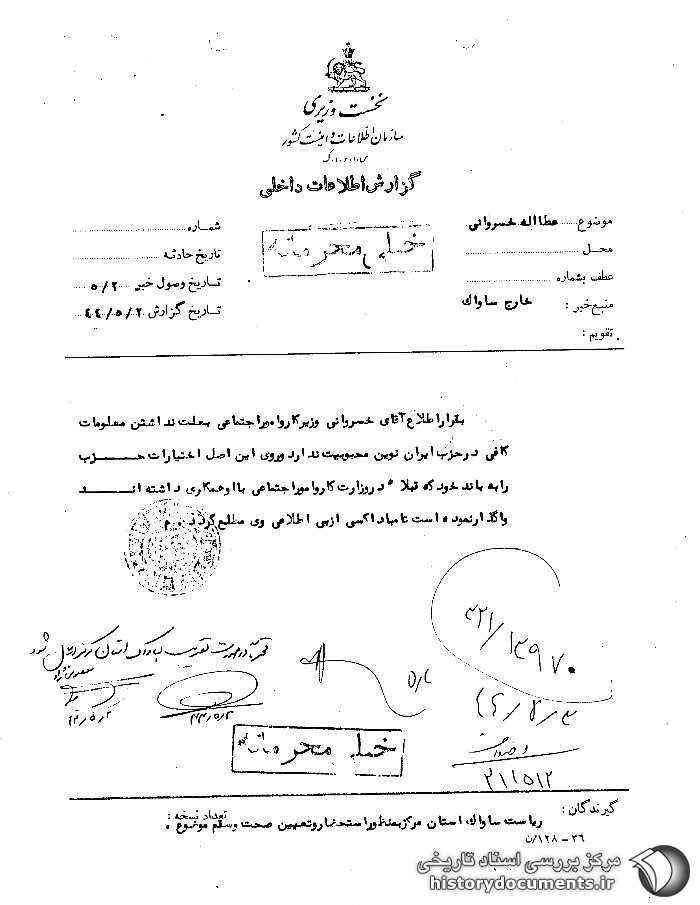 نخست وزیری
سازمان اطلاعات و امنیت کشور
س.ا.و.ا.ک
گزارش اطلاعات داخلی
موضوع عطااله خسروانی
محل
عطف بشماره
منبع خبر : خارج ساواک
تقویم :
شماره
تاریخ حادثه
تاریخ وصول خبر ۵/۲
تاریخ گزارش ۴۴/۵/۲
خیلی محرمانه
بقرار اطلاع آقای خسروانی وزیر کار و امور اجتماعی بعلت نداشتن معلومات
کافی در حزب ایران نوین محبوبیت ندارد و روی این اصل اختیارات حزب
را به باند خود که قبلا" در وزارت کار و امور اجتماعی با او همکاری داشته اند
واگذار نموده است تا مبادا کسی از بی اطلاعی وی مطلع گردد . م
۳۲۱/۱۳۹۷۰
۴۴/۵/۲
خیلی محرمانه
۲۱۱۵۱۲
گیرندگان :
تعداد نسخه :
ریاست ساواک استان مرکز بمنظور استحضار و تعیین صحت و سقم موضوع .
۳۶ - ۱۲۸/ن
مرکز بررسی اسناد تاریخی
historydocuments.ir